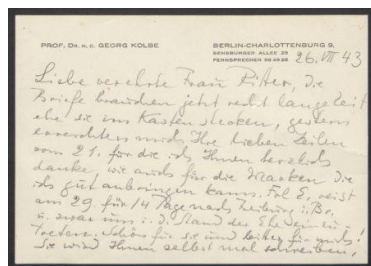 PROF. DR. H. C. GEORG KOLBE
BERLIN-CHARLOTTENBURG 9,
SENSBURGER ALLEE 25
FERNSPRECHER
26. VII 43
Liebe verehrte Frau Ritter, die
Briefe brauchen jetzt recht lange Zeit
ehe sie im Kasten stecken, gestern
erreichten mich Ihre lieben Zeilen
vom 21. für die ich Ihnen herzlich
danke, wie auch für die Marken die
ich gut anbringen kann. Frl E. reist
am 29. für 14 Tage nach Freiburg i. Br.
u. zwar um i. d. Stand der Ehe
treten. Schön für sie und für mich!
Sie wird Ihnen selbst mal schreiben,